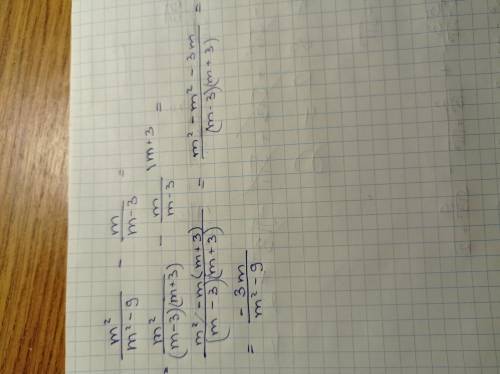 m²/(m² - 9) - m/(m - 3) =
= m²/((m - 3)(m + 3)) - m/(m - 3) \m + 3 =
(m² - m(m + 3))/((m - 3)(m + 3)) = (m² - m² - 3m)/((m - 3)(m + 3)) =
= (-3m)/(m² - 9)